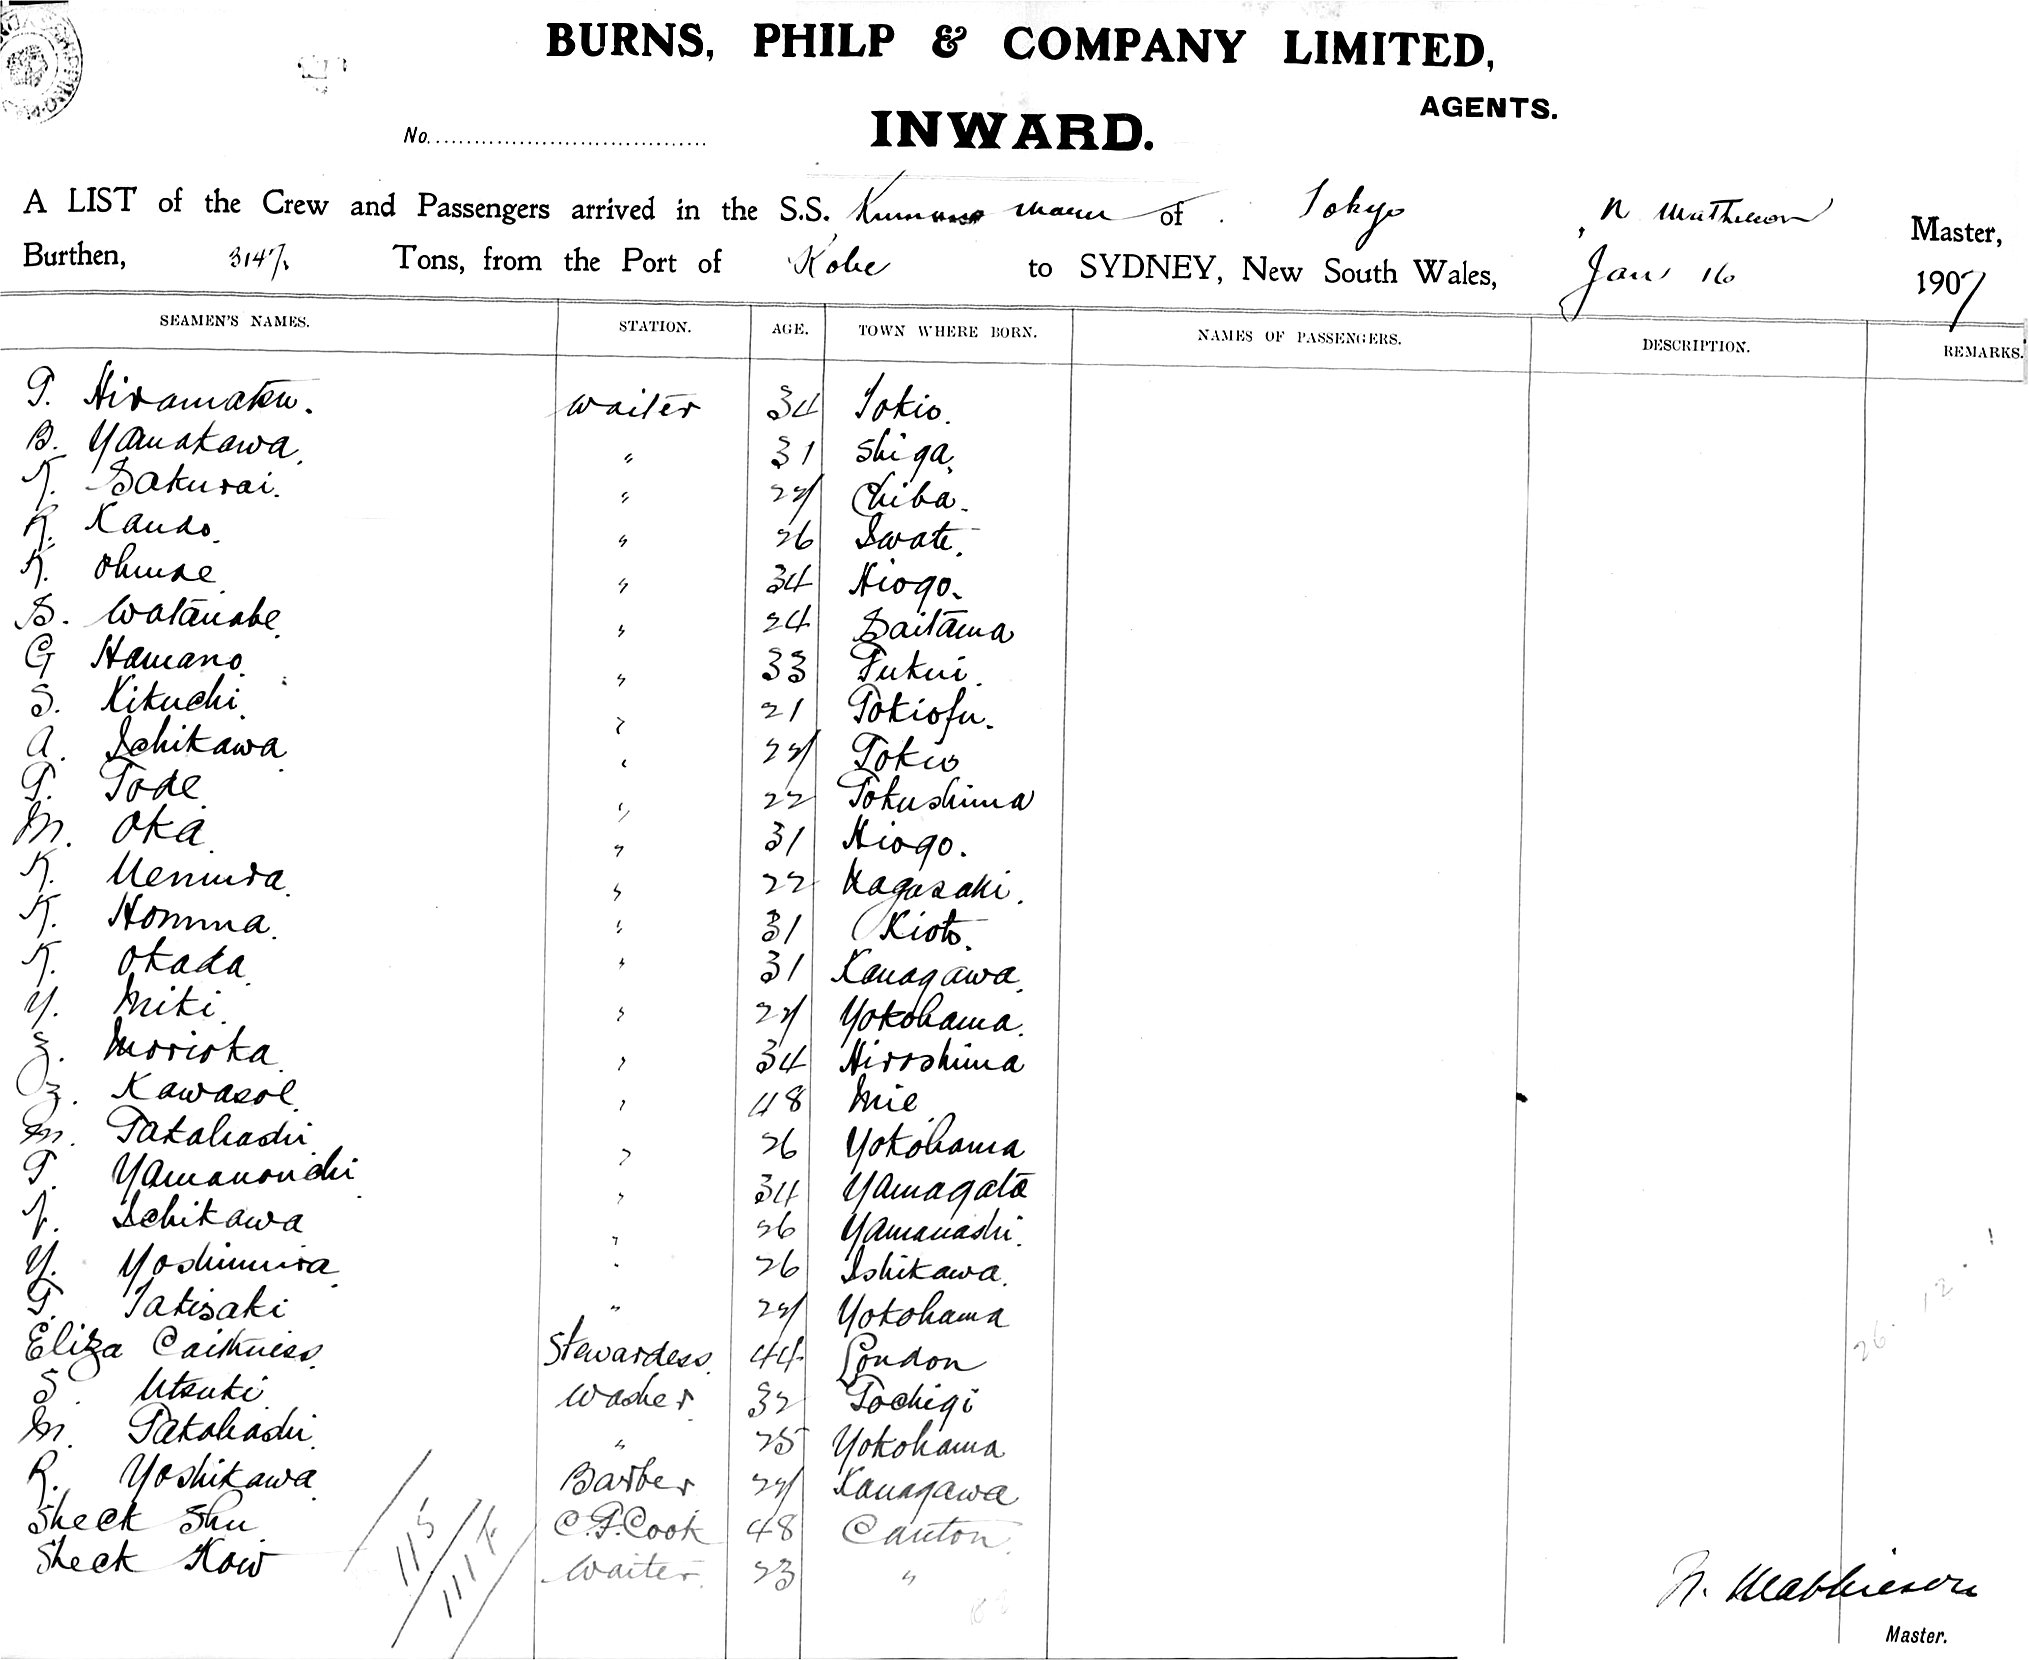 BURNS, PHILP & COMPANY LIMITED,
AGENTS.
INWARD.
No.
A LIST of the Crew and Passengers arrived in the S.S. Kumano Maru of Tokyo, N Mathieson Master,
Burthen, 3147 Tons, from the Port of Kobe to SYDNEY, New South Wales, Jan 16 1907
SEAMEN'S NAMES. STATION. AGE. TOWN WHERE BORN. NAMES OF PASSENGERS. DESCRIPTION. REMARKS.
T. Hiramatsu. Waiter 34 Tokio.
B. Yamakawa. " 31 Shiga.
K. Sakurai. " 27 Chiba.
R. Kando. " 26 Iwate.
K. Ohmae " 34 Hiogo.
S. Watanabe. " 24 Saitama
G Hamano. " 33 Fukui.
S. Kikuchi. " 21 Tokiofu.
A. Ichikawa " 27 Tokio
T. Tode " 22 Tokushima
M. Oka " 31 Hiogo.
K. Uemura. " 22 Nagasaki.
K. Homma. " 31 Kioto.
K. Okada. " 31 Kanagawa.
Y. Miki. " 27 Yokohama.
Z. Morioka. " 34 Hiroshima
Z. Kawasoe. " 48 Mie
M. Takahashi " 26 Yokohama
T. Yamanouchi " 34 Yamagata
Ichikawa " 26 Yamanashi.
Y. Yoshimura. " 26 Ishikawa.
T. Takisaki " 27 Yokohama
Eliza Caithness. Stewardess. 44 London
S. Utsuki Washer 32 Tochigi
M. Takahashi. " 25 Yokohama
R. Yoshikawa. Barber 27 Kanagawa
Sheck Shu C.F. Cook 48 Canton.
Sheck Kow Waiter. 23 "
115
N. Mathieson
Master.